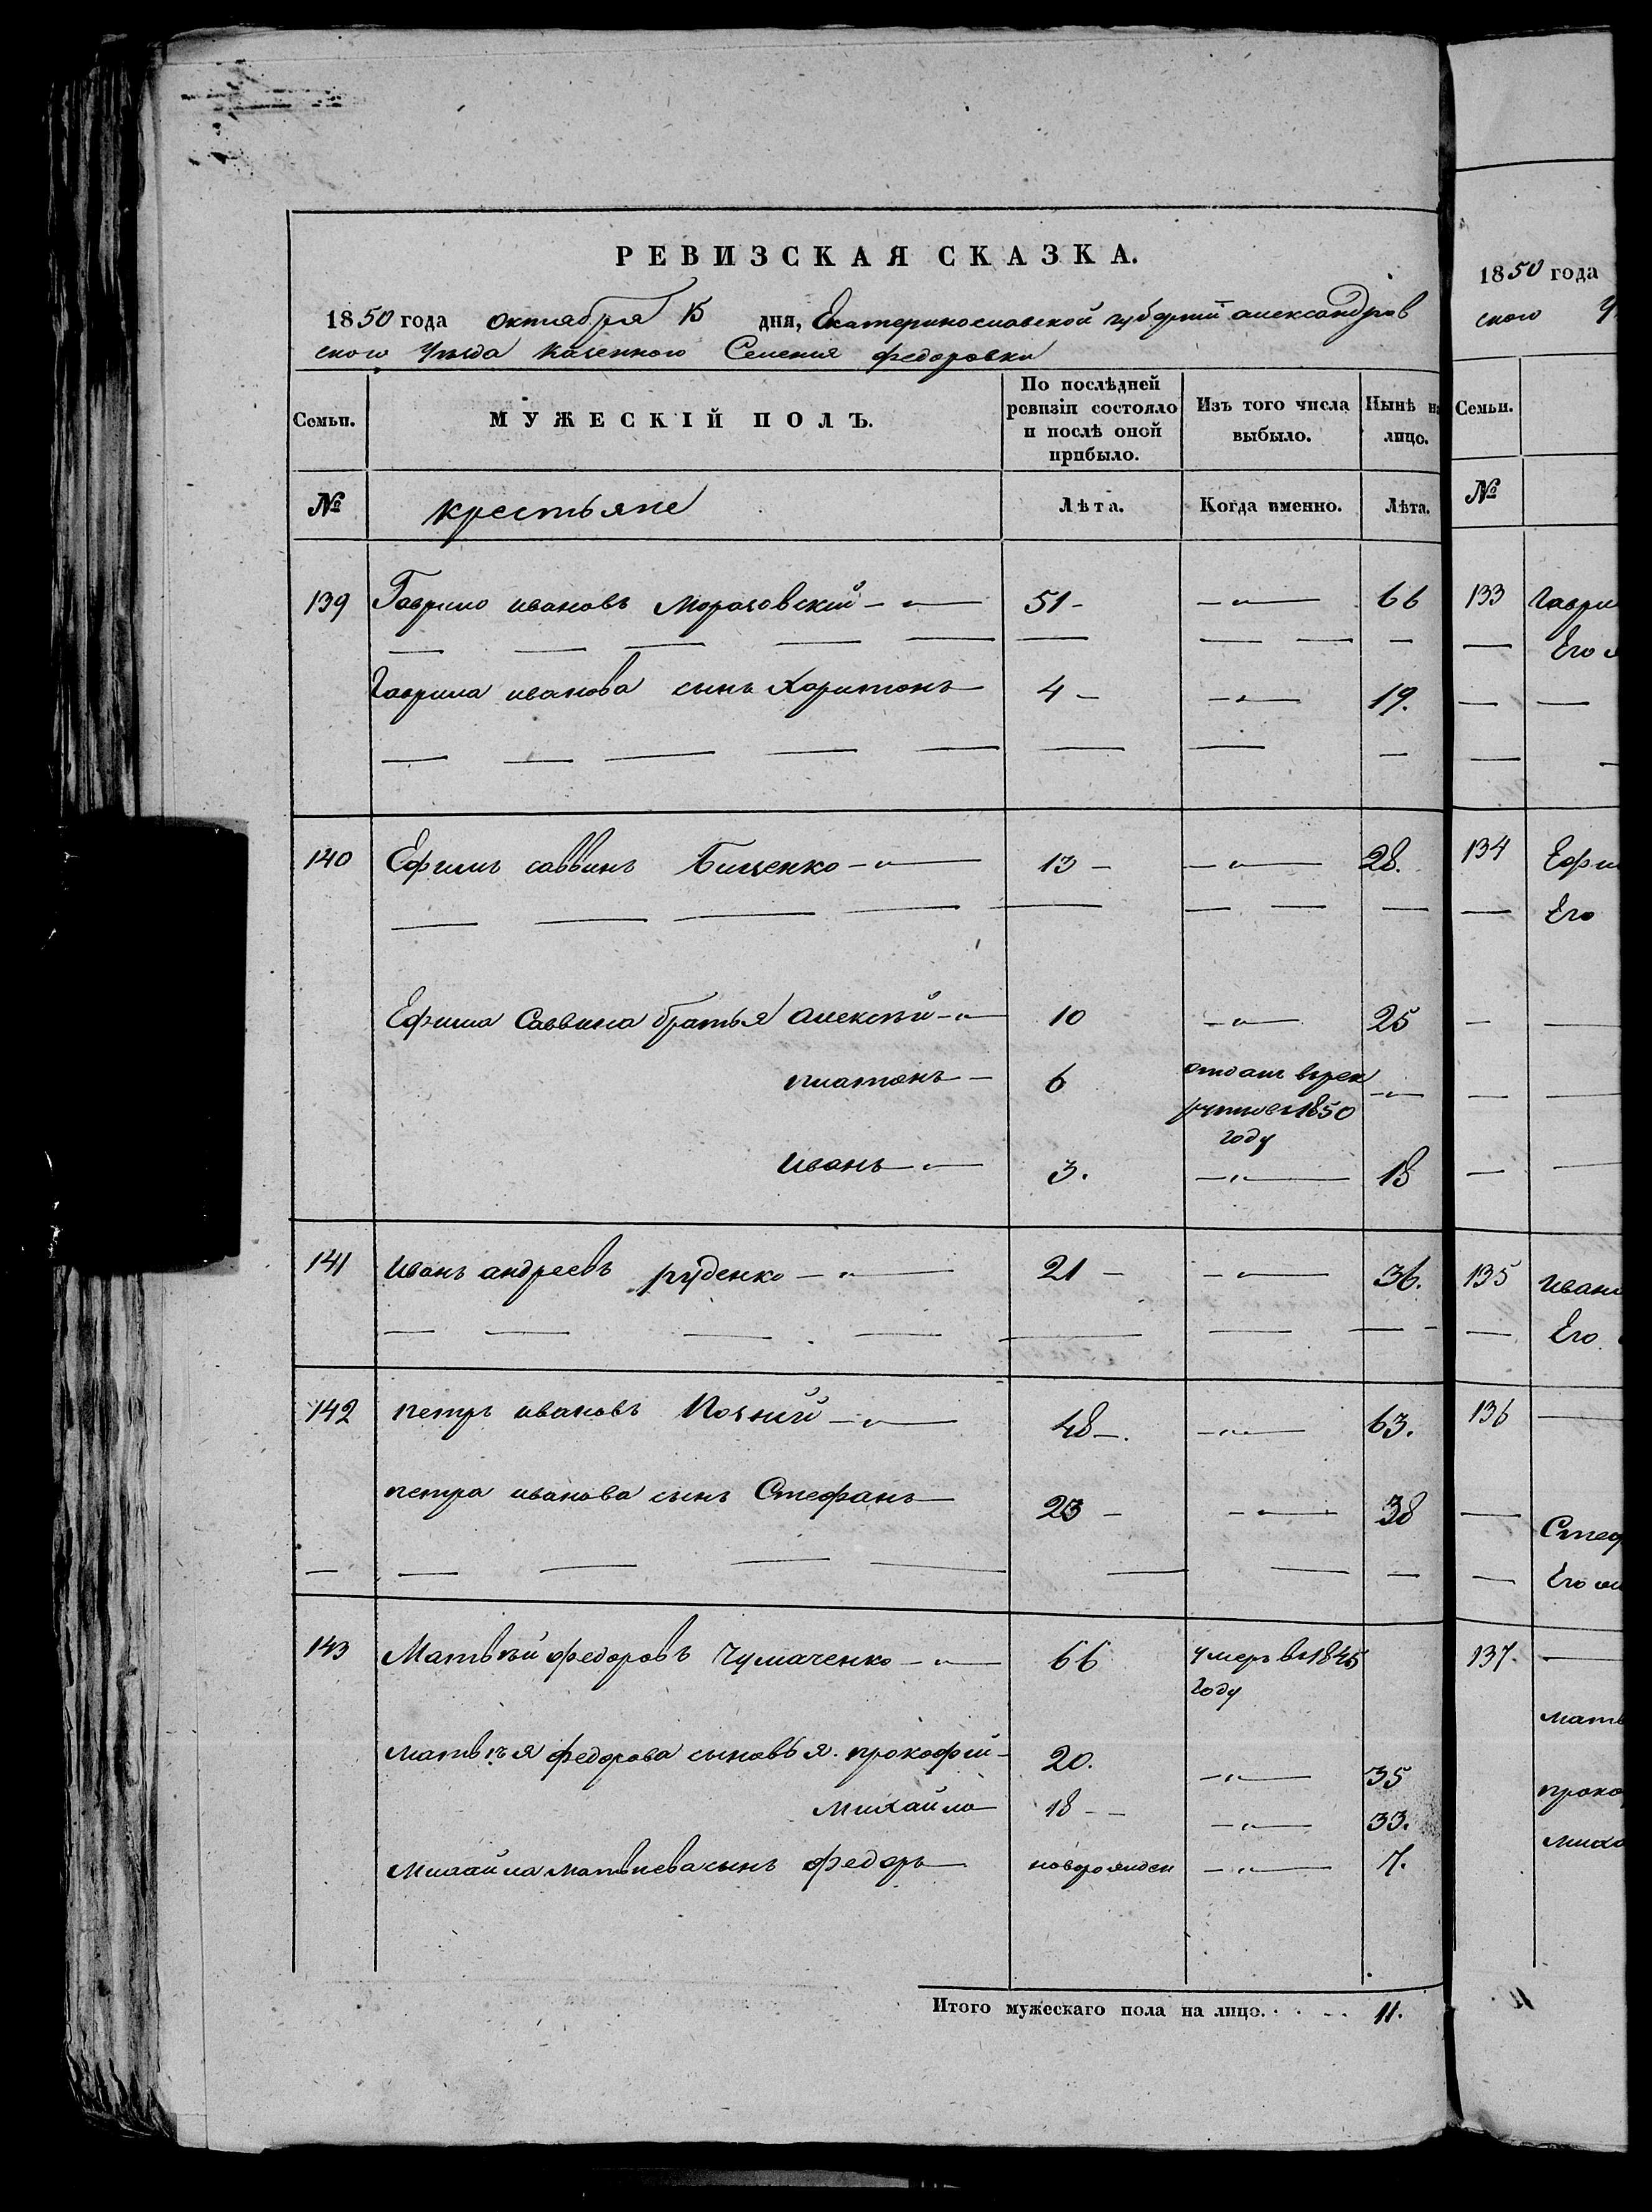 РЕВИЗСКАЯ СКАЗКА.
1850 года октября 15 дня, Екатеринославской губернии александров
ского Уезда казенного Селения федоровки
Семьи.
МУЖЕСКІЙ ПОЛЪ.
По послѣдней ревизіи состояло и послѣ оной прибыло.
Изъ того числа выбыло.
Нынѣ на лицо.
№ крестьяне Лѣта. Когда именно. Лѣта.
139 Гаврило ивановъ 51 - —„— 66
Гаврила иванова сынъ Харитонъ 4 - —„— 19.
140 Ефимъ саввинъ 13 - —„— 28.
Ефима Саввина братья алексѣй -„- 10 —„— 25
платонъ - 6 отдан в рекруты в 1850 году —„—
иванъ -„- 3. —„— 18
141 иванъ андреевъ руденко -„- 21 - —„— 36.
142 петръ ивановъ -„- 48 -. —„— 63.
петра иванова сынъ Стефанъ 23 - —„— 38
143 Матвѣй федоровъ Чумаченко -„- 66 умеръ в 1845 году
матвѣя федорова сыновья. прокофий - 20. —„— 35
михайло 18 - - —„— 33.
михайла матвиева сынъ федоръ новорожден —„— 7.
Итого мужескаго пола на лицо. 11.
1850 года
ского
Семьи.
№
133 Гаври
Его
134 Ефи
Его
135 иван
Его
136
Стеф
Его
137.
мать
проко
миха